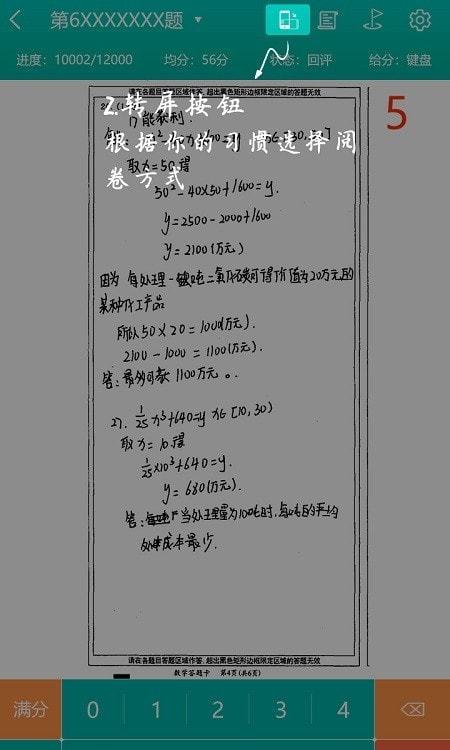 第6XXXXXXX题
进度：10002/12000 均分：56分 状态：回评 给分：键盘
请在各题目答题区域作答，超出黑色矩形边框限定区域的答题无效
5
1)能获利.
2.转屏按钮
根据你的习惯选择阅
卷方式
取x=50得
50²-40×50+1600=y.
y=2500-2000+1600
y=2100(万元)
因为 每处理一吨二氧化碳可得价值为20万元的
某种化工产品
所以50×20=1000(万元).
2100-1000=1100(万元).
答：最多可获1100万元。
2). 1/25 x³+640=y x∈[10,30)
取x=10.得
1/25×10³+640=y.
y=680(万元).
答：当处理量为10吨时,每吨的平均
处理成本最少.
请在各题目答题区域作答，超出黑色矩形边框限定区域的答题无效
数学答题卡 第4页(共6页)
满分 0 1 2 3 4